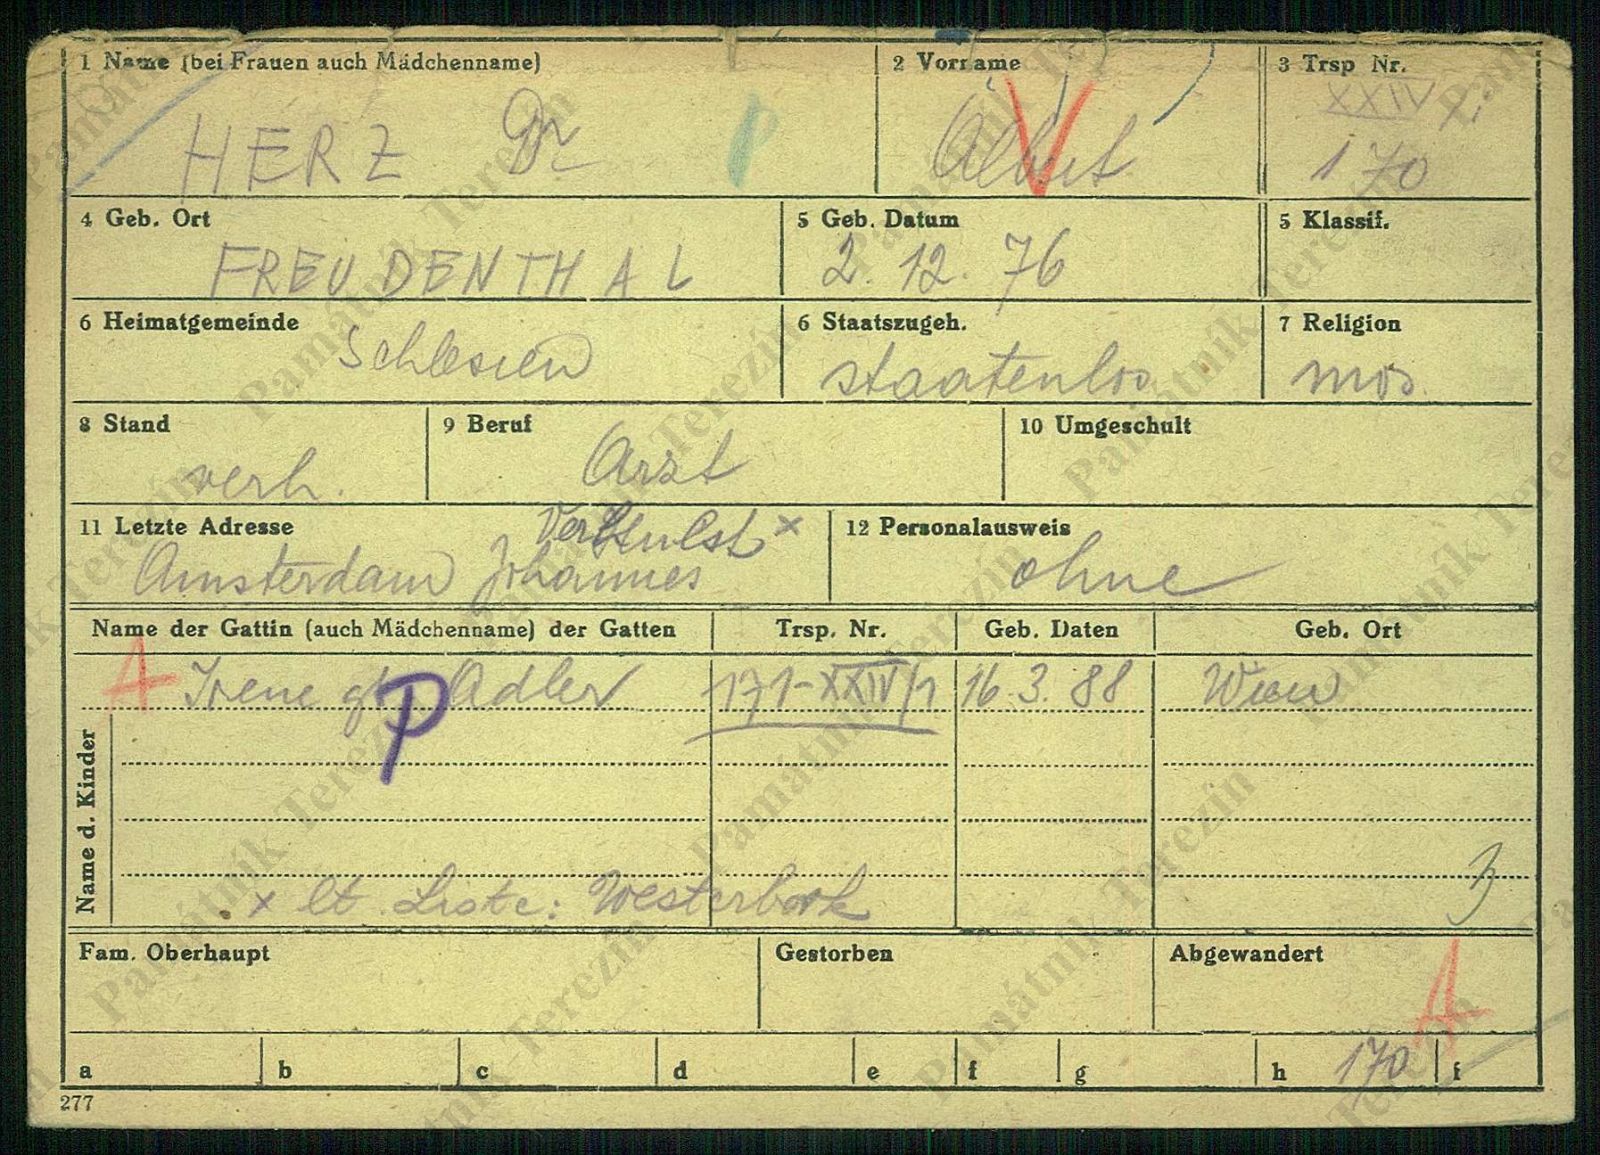 1 Name (bei Frauen auch Mädchenname)
2 Vorname
3 Trsp Nr.
HERZ Dr
Albert
XXIV/1
170
4 Geb. Ort
5 Geb. Datum
5 Klassif.
FREUDENTHAL
2. 12. 76
6 Heimatgemeinde
6 Staatszugeh.
7 Religion
Schlesien
staatenlos
mos.
8 Stand
9 Beruf
10 Umgeschult
verh.
Arzt
11 Letzte Adresse
12 Personalausweis
x
Amsterdam Johannes
ohne
Name der Gattin (auch Mädchenname) der Gatten
Trsp. Nr.
Geb. Daten
Geb. Ort
A Irene Adler
171-XXIV/1
16.3.88
Wien
P
Name d. Kinder
3
x lt. Liste: Westerbork
Fam. Oberhaupt
Gestorben
Abgewandert
A
a
b
c
d
e
f
g
h
170
i
277
Památník Terezín